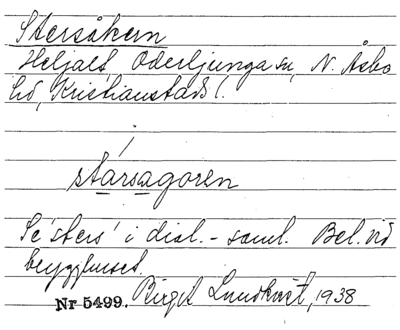 Stersåkern
Heljalt, Oderljunga sn, N. Åsbo
hd, Kristianstads l.
stársagoren
Se 'sters' i dial.-saml. Bel. vid
brygghuset.
Nr 5499. Birgit Lundkvist, 1938